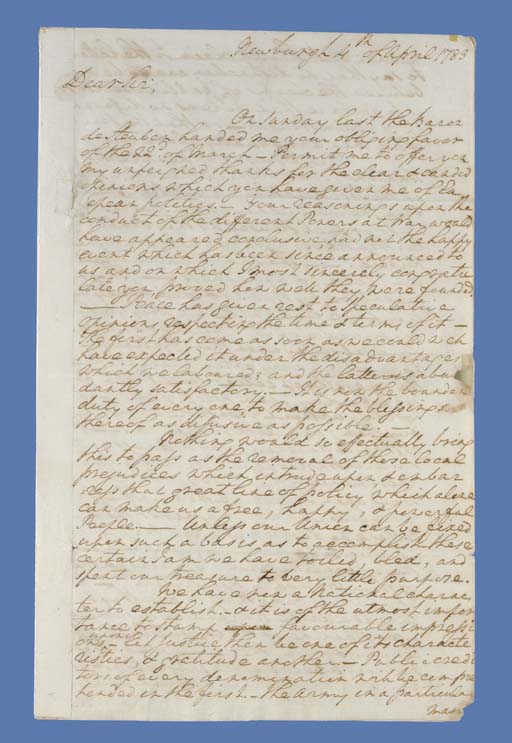 Newburgh 4th of April 1783
Dear Sir,
On Sunday last the Baron
de Steuben handed me your obliging favor
of the 22d of March — Permit me to offer you
my unfeigned thanks for the clear & candid
opinions which you have given me of Eu
ropean politics — Your reasonings upon the
conduct of the different Powers at War would
have appeared conclusive, had not the happy
event which has been since announced to
us and on which I most sincerely congratu
late you proved how well they were founded.
— Peace has given rest to speculative
opinions respecting the time & terms of it —
The first has come as soon as we could well
have expected it under the disadvantages
which we laboured; and the latter is abun
dantly satisfactory. — It is now the bounden
duty of every one to make the blessings
thereof as diffusive as possible. —
Nothing would so effectually bring
this to pass as the removal of those local
prejudices which intrude upon & embar
rass that great line of policy which alone
can make us a free, happy, & powerful
People. — Unless our Union can be fixed
upon such a basis as to accomplish these
certain I am we have toiled, bled, and
spent our treasure to very little purpose.
We have now a National charac
ter to establish — & it is of the utmost impor
tance to stamp favourable impressi
ons upon it; let justice then be one of its characte
ristics, & gratitude another — Public credi
tors of every denomination will be compre
hended in the first — the Army in a particular
man